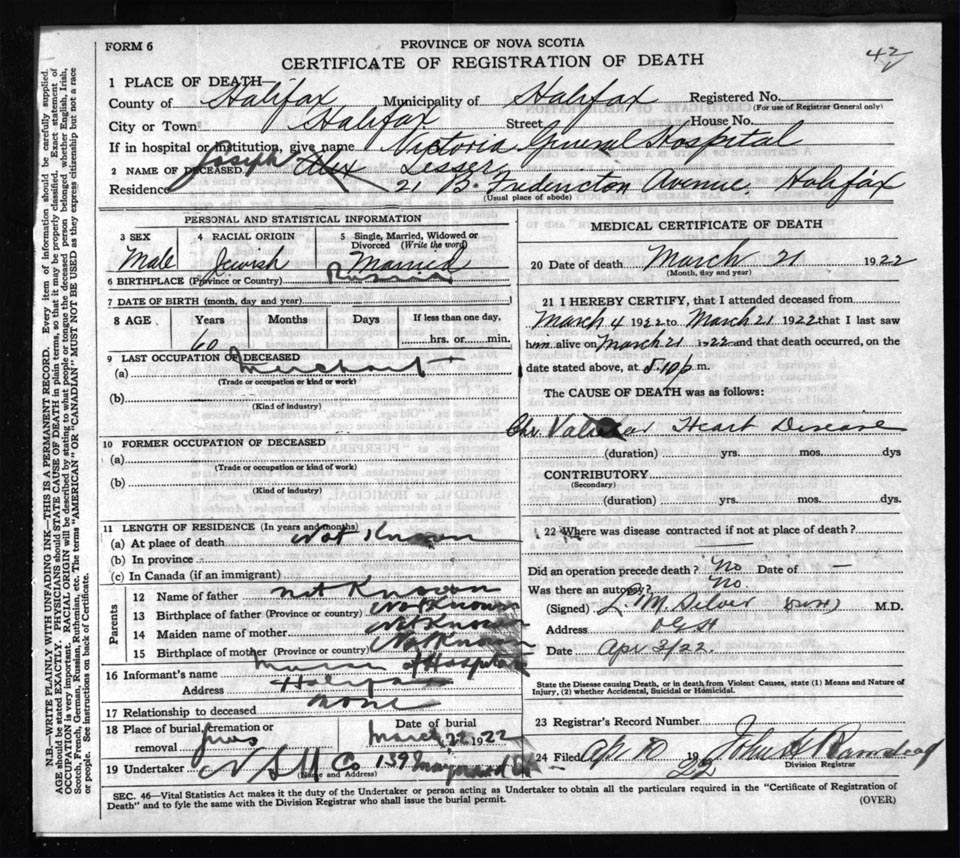 FORM 6
PROVINCE OF NOVA SCOTIA
42
CERTIFICATE OF REGISTRATION OF DEATH
1 PLACE OF DEATH
County of Halifax Municipality of Halifax Registered No.
(For use of Registrar General only)
City or Town Halifax Street House No.
If in hospital or institution, give name Victoria General Hospital
2 NAME OF DECEASED Joseph Alex Lesser
Residence 21 B. Fredericton Avenue, Halifax
(Usual place of abode)
PERSONAL AND STATISTICAL INFORMATION
3 SEX 4 RACIAL ORIGIN 5 Single, Married, Widowed or Divorced (Write the word)
Male Jewish Married
6 BIRTHPLACE (Province or Country) Russia
7 DATE OF BIRTH (month, day and year)
8 AGE Years Months Days If less than one day,
60 hrs. or min.
9 LAST OCCUPATION OF DECEASED
(a) Merchant
(Trade or occupation or kind or work)
(b)
(Kind of industry)
10 FORMER OCCUPATION OF DECEASED
(a)
(Trade or occupation or kind of work)
(b)
(Kind of industry)
11 LENGTH OF RESIDENCE (In years and months)
(a) At place of death Not Known
(b) In province
(c) In Canada (if an immigrant)
Parents
12 Name of father not Known
13 Birthplace of father (Province or country) Not Known
14 Maiden name of mother Not Known
15 Birthplace of mother (Province or country) Not Known
16 Informant's name of Hospital
Address Halifax
17 Relationship to deceased none
18 Place of burial, cremation or removal Date of burial
March 22 1922
19 Undertaker N S U Co 1397 Maynard St
(Name and Address)
MEDICAL CERTIFICATE OF DEATH
20 Date of death March 21 1922
(Month, day and year)
21 I HEREBY CERTIFY, that I attended deceased from
March 4 1922 to March 21 1922 that I last saw
him alive on March 21 1922 and that death occurred, on the
date stated above, at 5.10 p. m.
The CAUSE OF DEATH was as follows:
Chr. Heart Disease
(duration) yrs. mos. dys
CONTRIBUTORY
(Secondary)
(duration) yrs. mos. dys.
22 Where was disease contracted if not at place of death?
Did an operation precede death? No Date of —
Was there an autopsy? No.
(Signed) L. M. Silver M.D.
Address
Date Apr 3/22.
State the Disease causing Death, or in death from Violent Causes, state (1) Means and Nature of
Injury, (2) whether Accidental, Suicidal or Homicidal.
23 Registrar's Record Number
24 Filed Apr 10 1922
Division Registrar
SEC. 46—Vital Statistics Act makes it the duty of the Undertaker or person acting as Undertaker to obtain all the particulars required in the "Certificate of Registration of
Death" and to fyle the same with the Division Registrar who shall issue the burial permit.
(OVER)
N.B.—WRITE PLAINLY WITH UNFADING INK—THIS IS A PERMANENT RECORD. Every item of information should be carefully supplied.
AGE should be stated EXACTLY. PHYSICIANS should STATE CAUSE OF DEATH in plain terms, so that it may be properly classified. Exact statement of
OCCUPATION is very important. RACIAL ORIGIN will be described by stating to what people or tongue the deceased person belonged whether English, Irish,
Scotch, French, German, Russian, Ruthenian, etc. The terms "AMERICAN" OR "CANADIAN" MUST NOT BE USED as they express citizenship but not a race
or people. See instructions on back of Certificate.